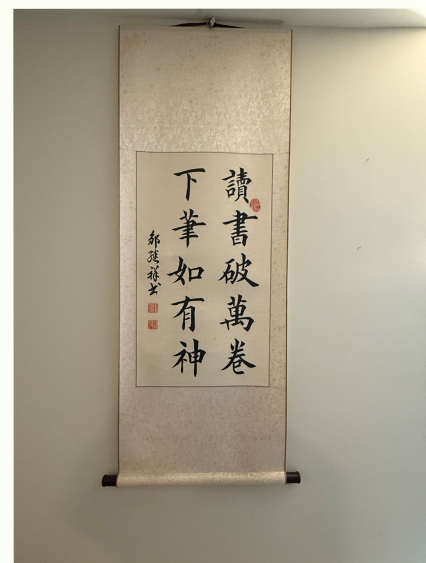 讀書破萬卷
下筆如有神
祥書